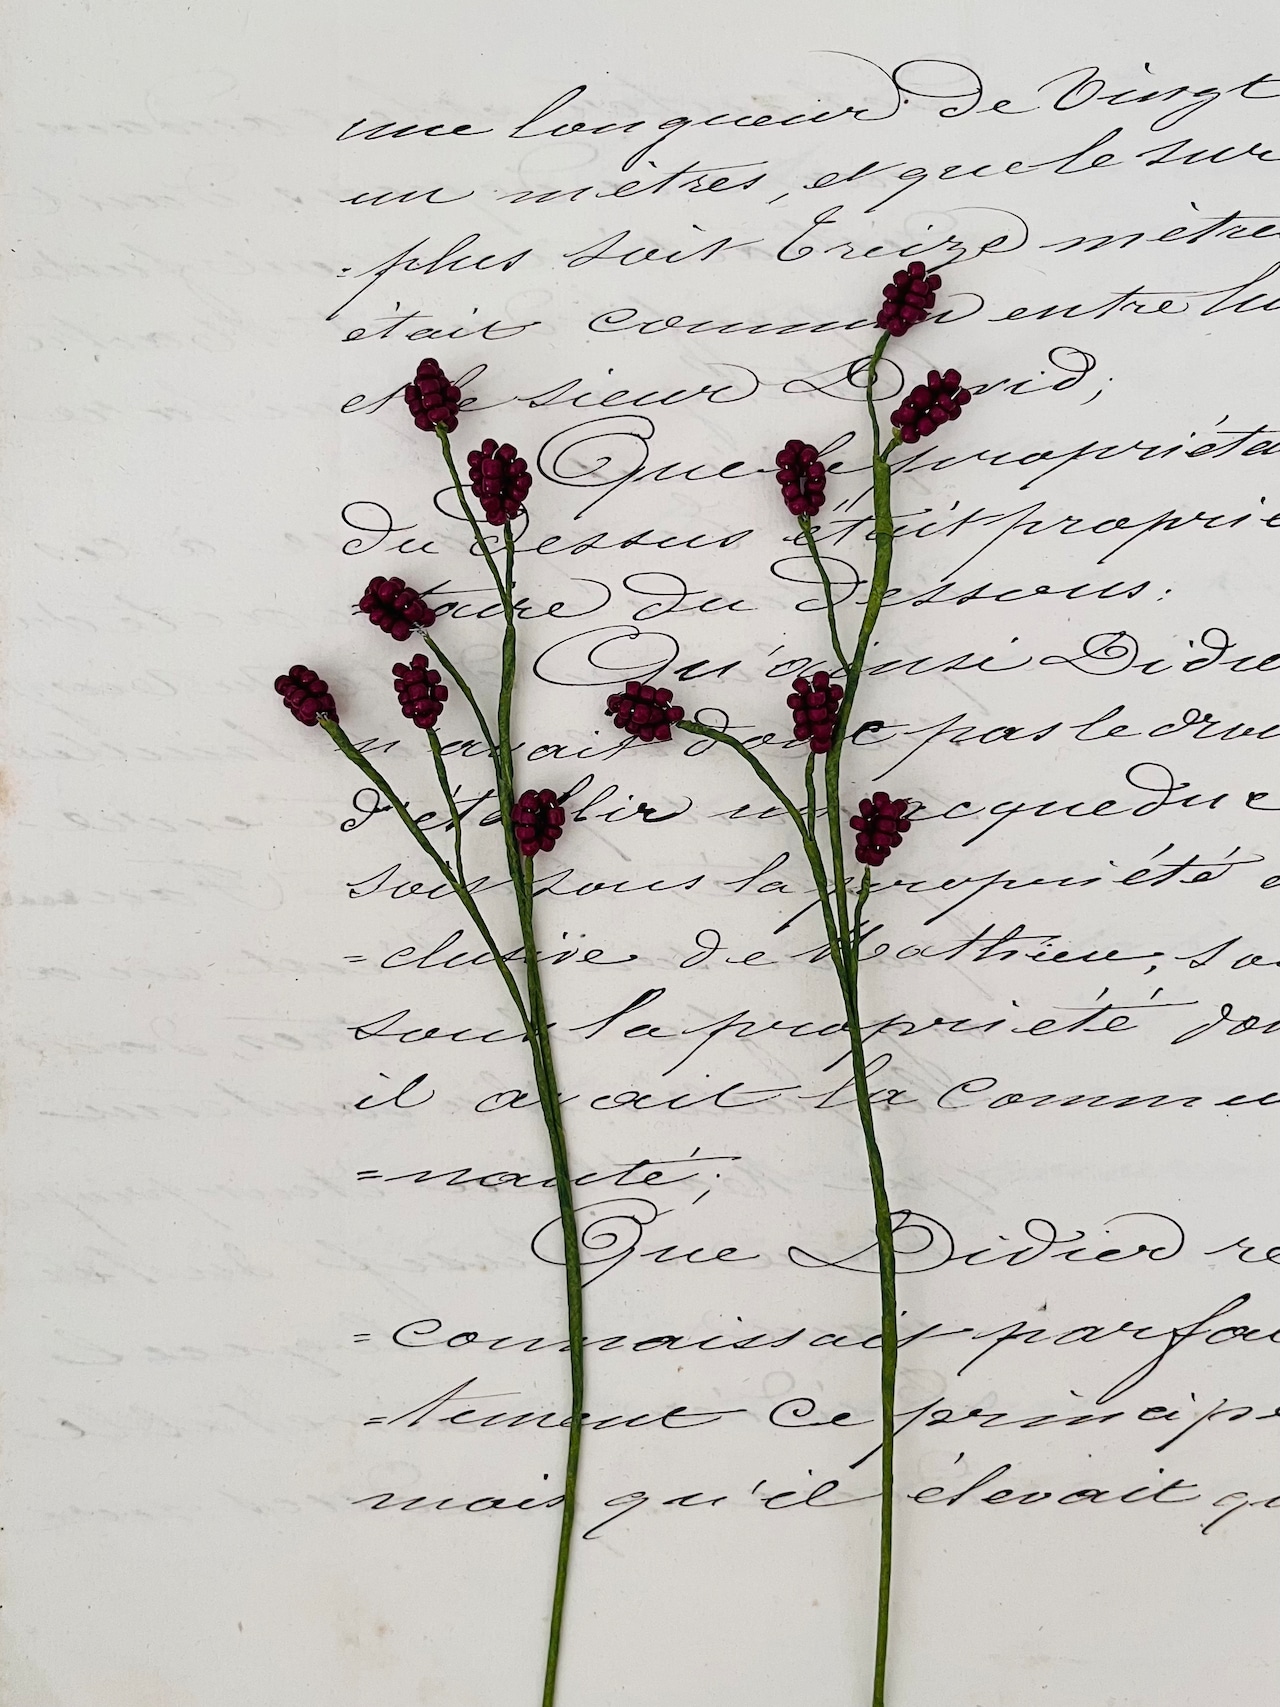 une longueur de Vingt
un mètres, et que le sur
=plus soit Treize mètre
était commun entre lu
et le sieur David;
Que le propriéta
du dessus était proprié
=taire du dessous:
Qu'ainsi Didie
n'avait donc pas le droi
d'établir un acqueduc
soit sous la propriété e
=clusive de Mathieu, so
sous la propriété don
il avait la Commu
=nauté;
Que Didier re
=connaissait parfai
=tement ce principe
mais qu'il élevait qu